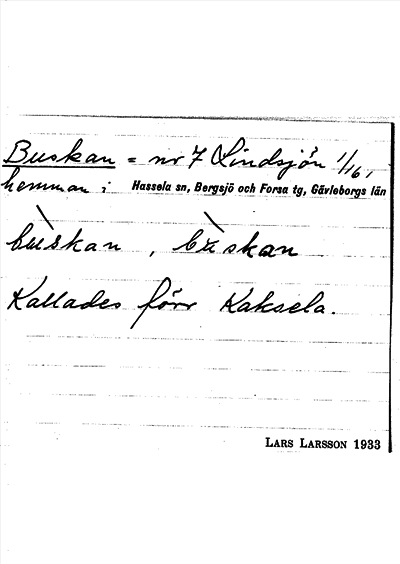 Buskan = nr 7 Lindsjön 1/16,
hemman i Hassela sn, Bergsjö och Forsa tg, Gävleborgs län
bùskan, bùskan
Kallades förr Kaksela.
LARS LARSSON 1933